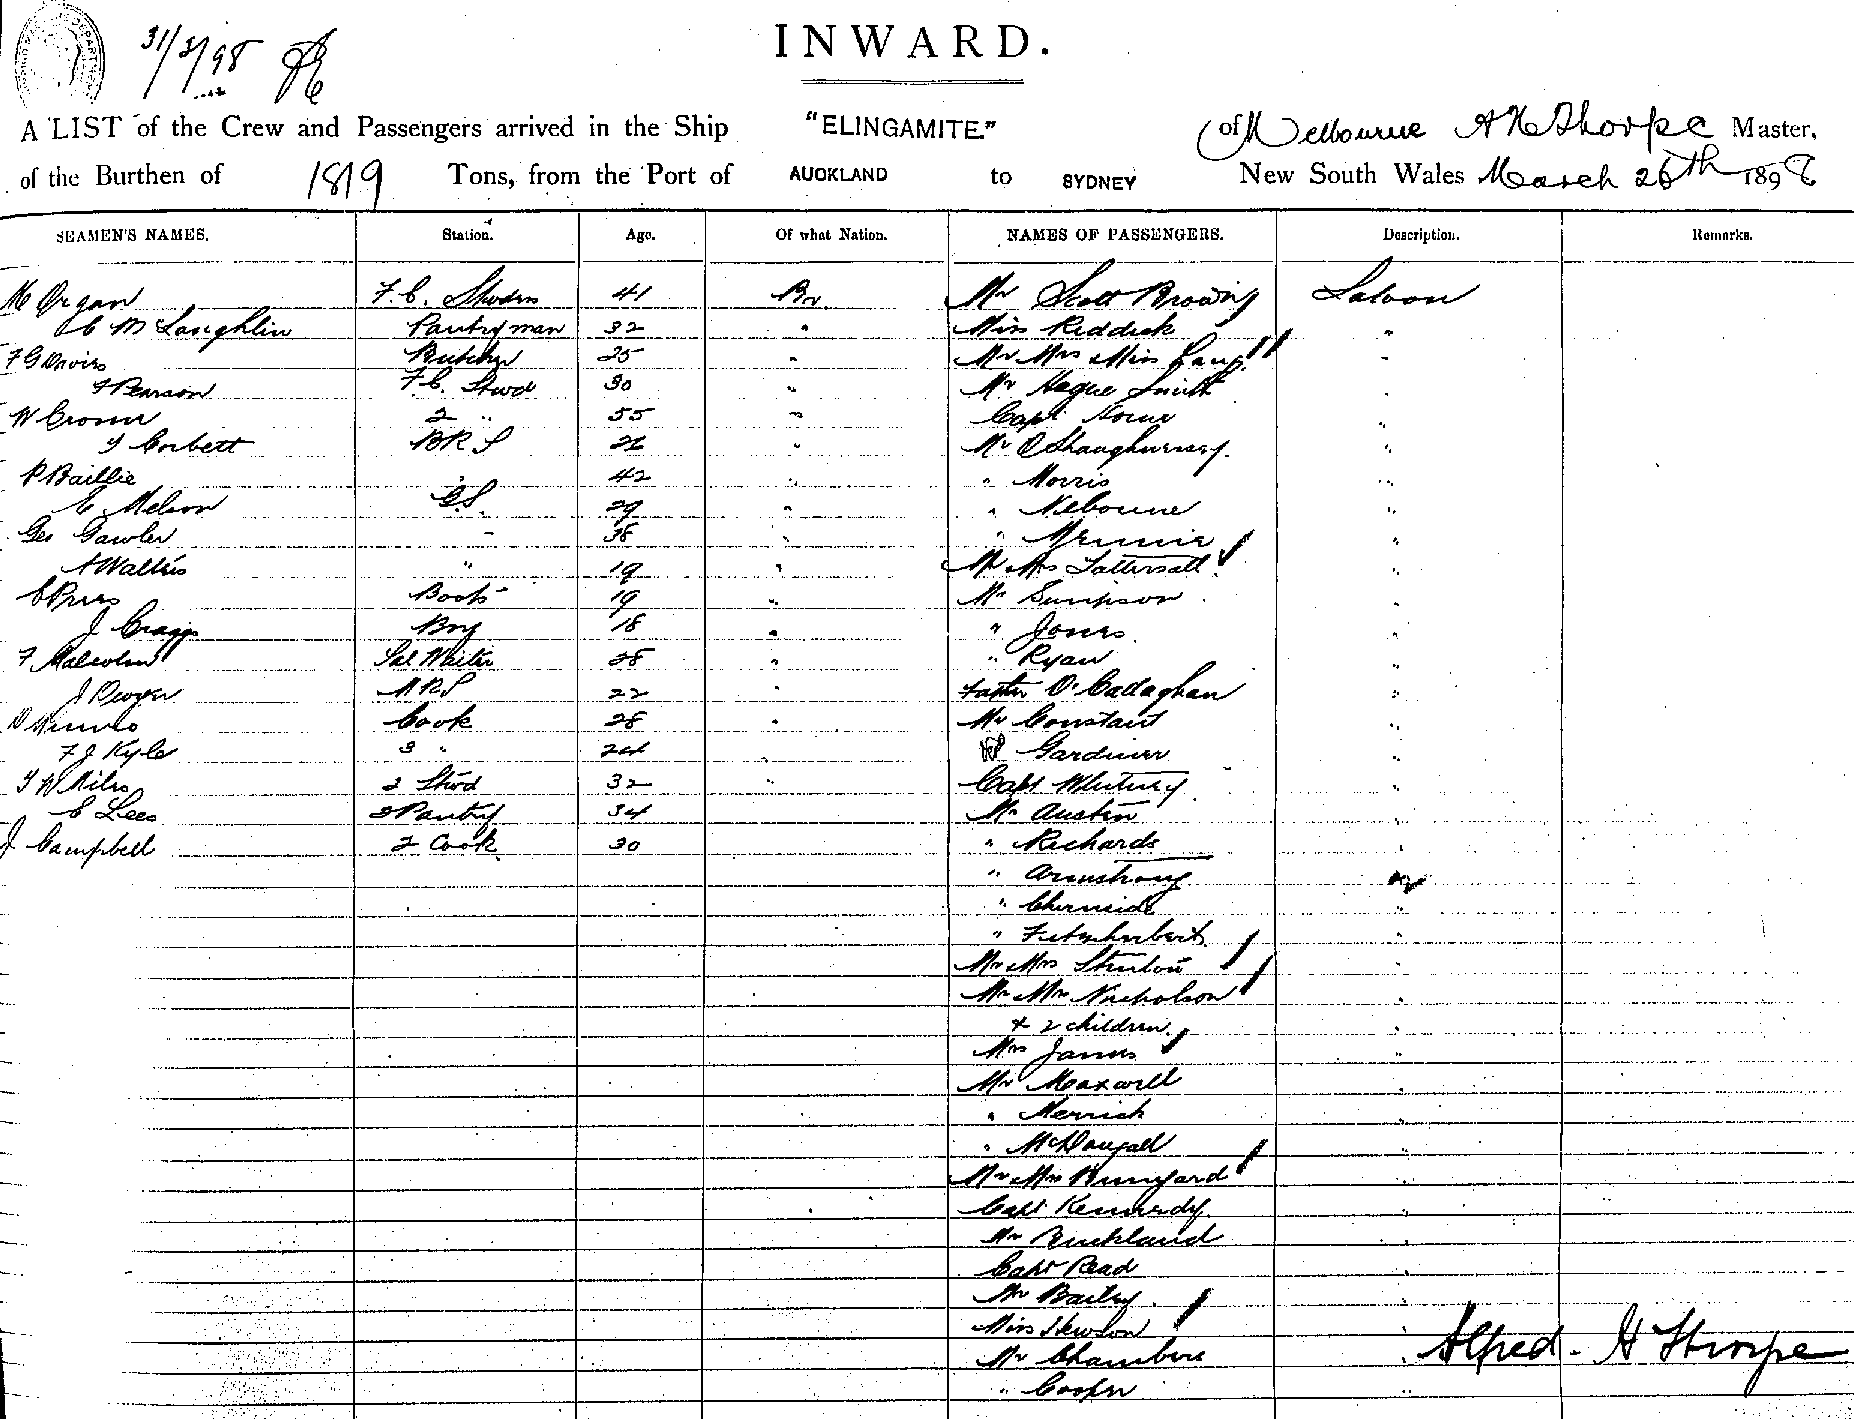 31/3/98
INWARD.
A LIST of the Crew and Passengers arrived in the Ship "ELINGAMITE" of Melbourne A H Thorpe Master,
of the Burthen of 1819 Tons, from the Port of AUCKLAND to SYDNEY New South Wales March 26th 1898
SEAMEN'S NAMES. Station. Age. Of what Nation. NAMES OF PASSENGERS. Description. Remarks.
M Organ F.C. 41 Br. Mr Scott Saloon
C McLaughlin Pantryman 32 " Miss Reddick "
F G Davies Butcher 25 " Mr Mrs & Miss "
F Pearson F.C. Stwd 30 " Mr Hague Smith "
W 2 " 55 " Capt "
T Corbett B R S 26 " Mr O'Shaughnessy "
P Baillie " 42 " Morris "
C Nelson G.S. 29 " " "
Geo Gawler " 38 " " "
A Wallis " 19 " Mr Mrs Tattersall "
Boots 19 " Mr Simpson "
J Craggs Boy 18 " " Jones "
F Malcolm Sal Waiter 28 " " Ryan "
J Dwyer 22 " O'Callaghan "
D Munro Cook 28 " Mr Constant "
F J Kyle 3 " 24 Gardiner "
T W Miles 2 Stwd 32 " Capt Whitney "
C Lees 2 Pantry 34 Mr Austin "
J Campbell 2 Cook 30 " Richards "
" Armstrong "
" "
" Fitzherbert "
Mr Mrs "
Mr Mrs Nicholson "
+ 2 children "
Mrs James "
Mr Maxwell "
" Merrick "
" McDougall "
Mr Mrs Bungard "
Capt Kennedy "
Mr Buckland "
Capt Read "
Mr Bailey "
Miss Hewson "
Mr Chambers " Alfred. H Thorpe
" Cooper "